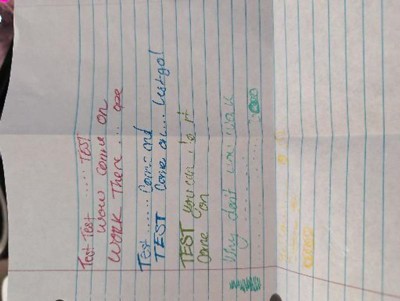 Test Test ...... TEST
wow come on
work There ... ope
Test ...... Come on!
TEST Come on ... Lets go!
TEST you can do it
Come on
Why don't you work